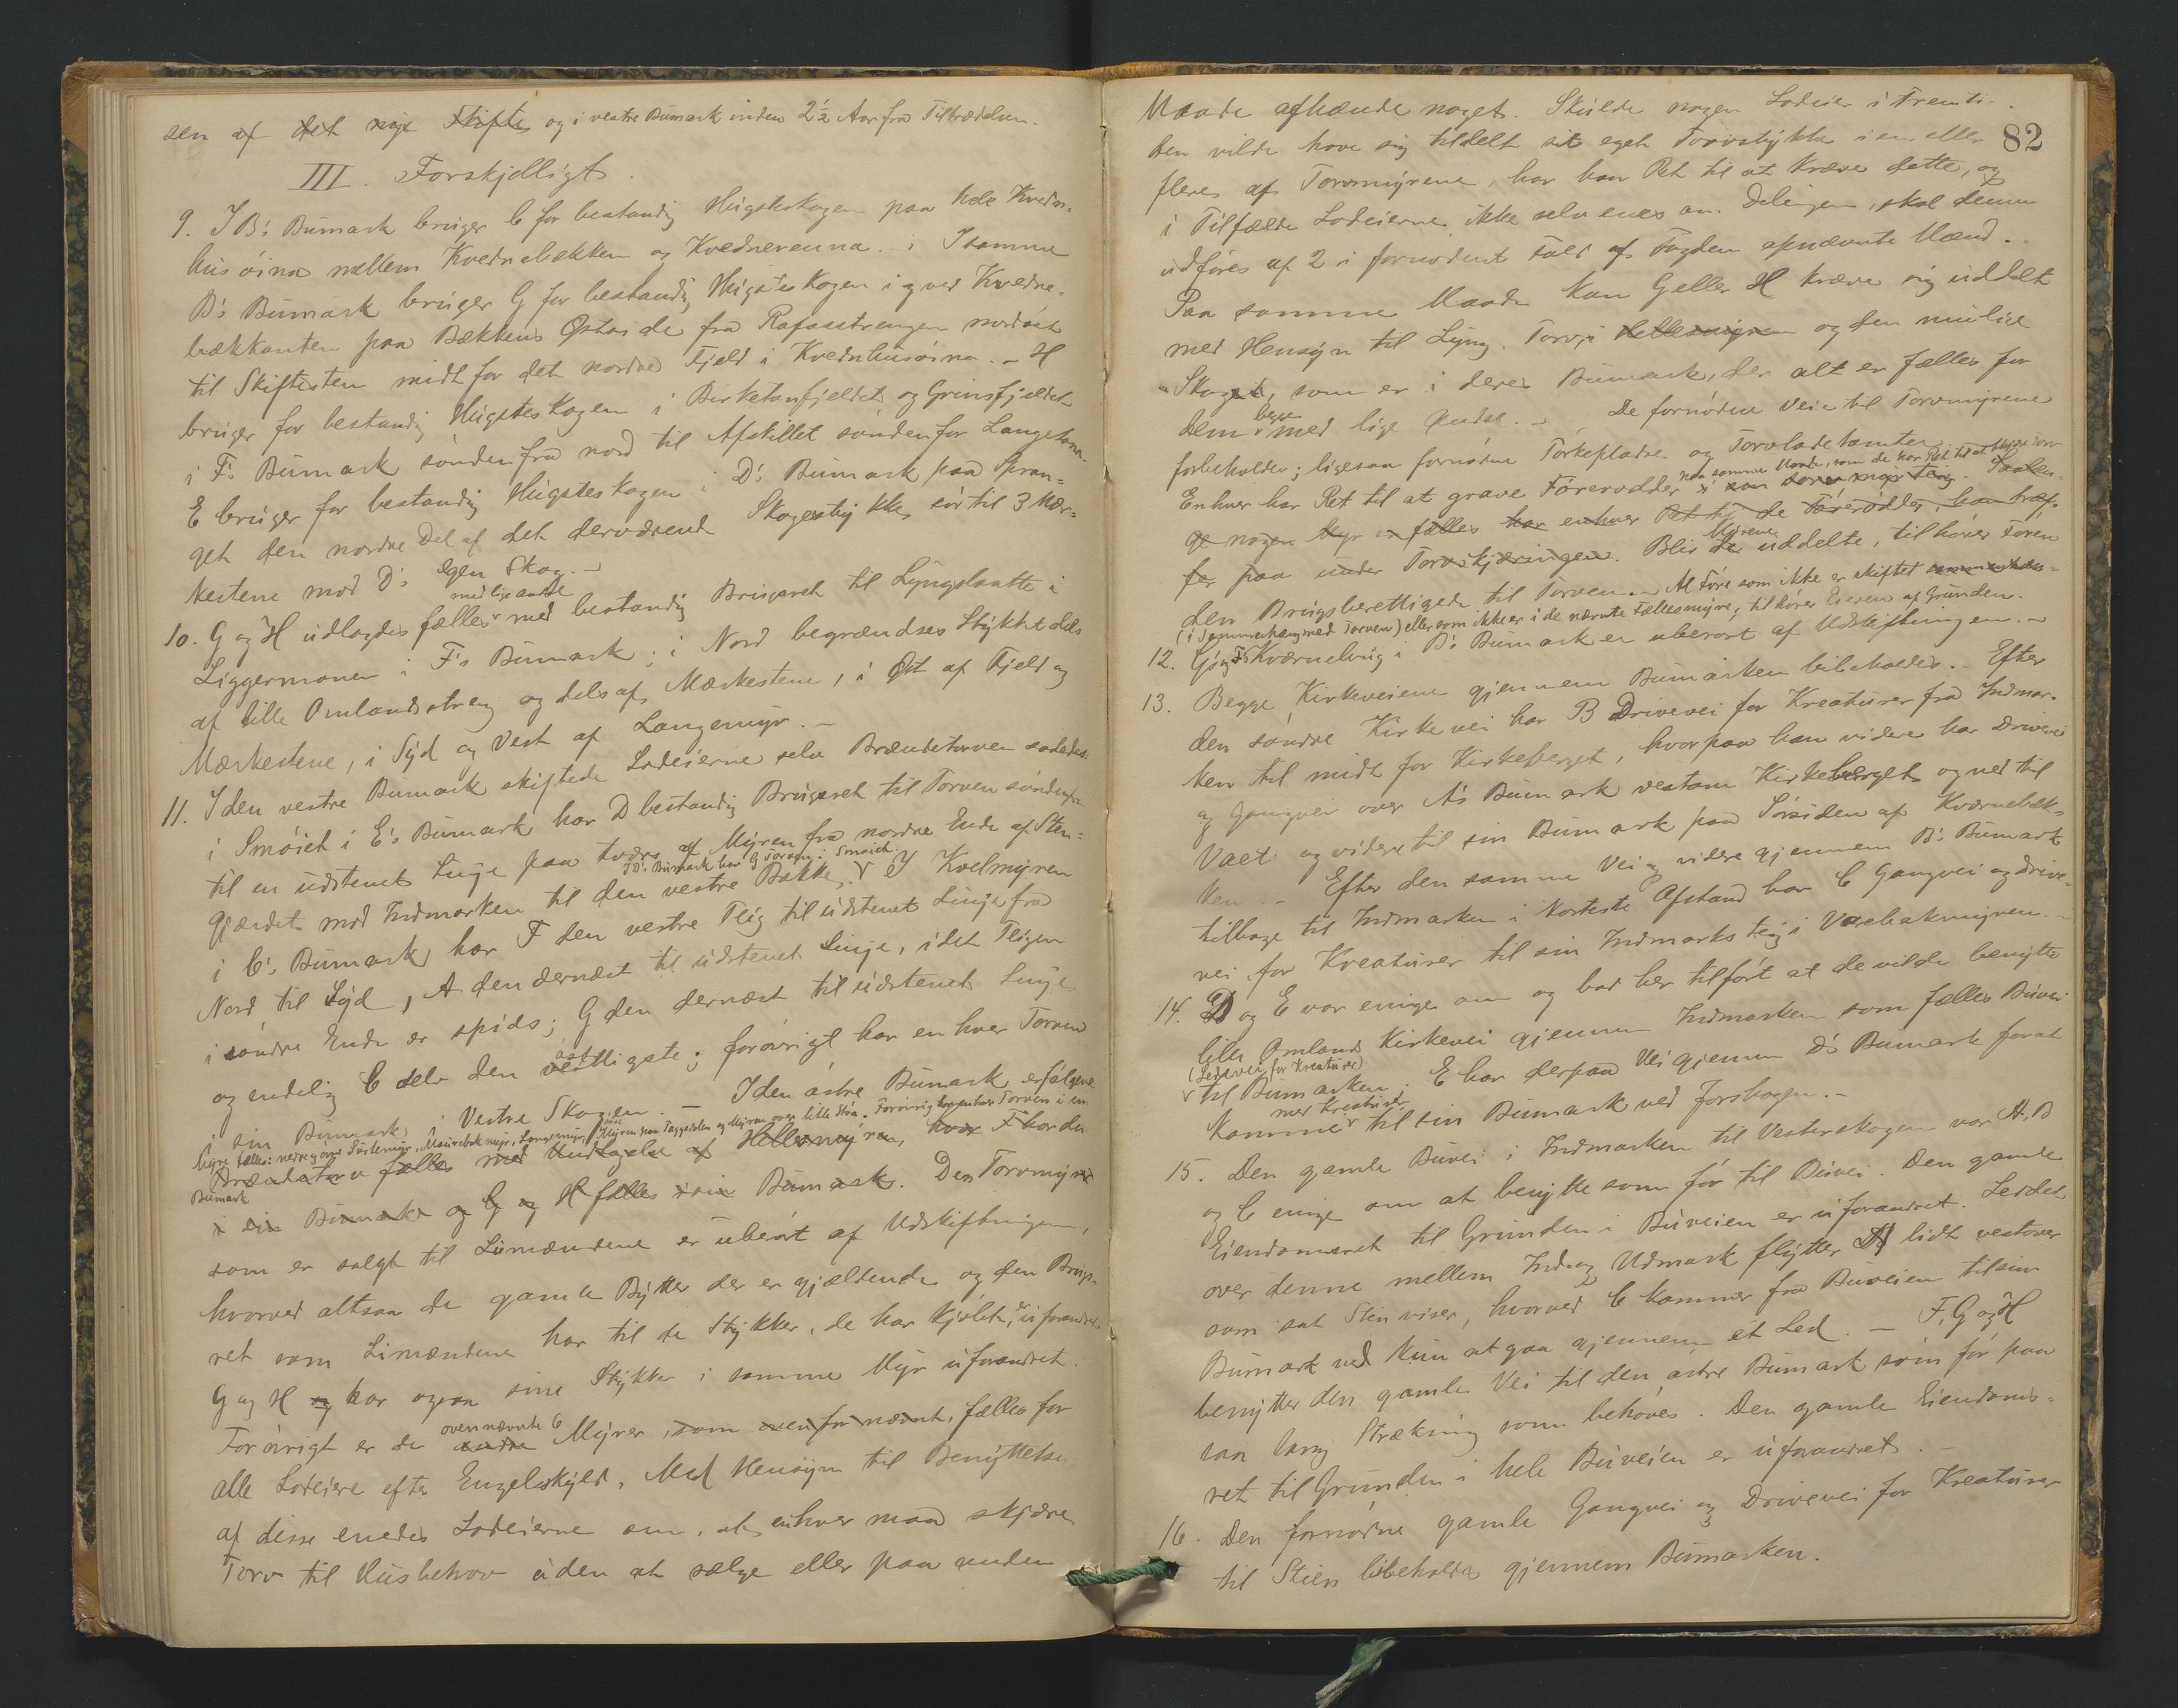 sen af det nøje Skifte og i vestre Bumark inden 2½ Aar fra Tiltrædelsen.
III. Forskjelligt.
9. I B's Bumark bruger C for bestandig Hugsteskogen paa hele Kvedn-
husøina mellem Kvednebækken og Kvednerenna. I samme
B's Bumark bruger G for bestandig Hugsteskogen i og ved Kvedne-
bækkanten paa Bækkens Østside fra Rafosstrengen nordøst
til Skiftesten midt for det nordre Fjeld i Kvednhusøina. - H
bruger for bestandig Hugsteskogen i Birketanfjeldet og Grinsfjeldet
i F's Bumark søndenfra nord til Afskillet søndenfor Langetona.
E bruger for bestandig Hugsteskogen i D's Bumark paa Spran-
get den nordre Del af det derværende Skogestykke, sør til 3 Mær-
kestene mod D's egen Skog. -
10. G og H udlagdes fælles med lige andele med bestandig Brugsret til Lyngslaatte i
Liggermonen i F's Bumark; i Nord begrændses Stykket dels
af lille Omlandsstreng og dels af Mærkestene, i Øst af Fjeld og
Mærkestene, i Syd og Vest af Langemyr. -
11. I den vestre Bumark skiftede Lodeierne selv Brændetorven saaledes:
i Smøiet i E's Bumark har D bestandig Brugsret til Torven søndenfra
til en udstenet Linje paa tværs af Myren fra nordre Ende af Sten-
gjærdet mod Indmarken til den vestre Bække. I D's Bumark har G Torven i Smøiet. I Kvelmyren
i C's Bumark har F den vestre Teig til udstenet Linje fra
Nord til Syd, A den dernæst til udstenet Linje, idet Teigen
i søndre Ende er spids; G den dernæst til udstenet Linje
og endelig C selv den østligste; forøvrigt har enhver Torven
i sin Bumark i Vestre Skogen. - I den østre Bumark er følgene
Myre fælles: nedre og øvre Svitemyr, Maurebekmyr, Langemyr, Myren paa Taggedalen og Myren over lille Støa. Forøvrig har enhver Torven i sin
Bumark
Brændetorv fælles med Undtagelse af Hellemyren, hvor F har den
i sin Bumark og G og H fælles i sin Bumark. Den Torvmyr
som er solgt til Limændene er uberørt af Udskiftningen,
hvorved altsaa de gamle Bytter der er gjældende og den Brugs-
ret som Limændene har til de Stykker, de har kjøbt, er uforandret.
G og H og har ogsaa sine Stykker i samme Myr uforandret.
Forøvrigt er de ovennævnte 6 andre Myrer, som ovenfor nævnt, fælles for
alle Lodeiere efter Engelskyld. Med Hensyn til Benyttelsen
af disse enedes Lodeierne om, at enhver maa skjære
Torv til Husbehov uden at sælge eller paa anden
82
Maade afhænde noget. Skulde nogen Lodeier i Fremti-
den vilde have sig tildelt sit eget Torvstykke i en eller
flere af Torvmyrene, har han Ret til at kræve dette, og
i Tilfælde Lodeierne ikke selv enes om Delingen, skal denne
udføres af 2 i fornødent Fald af Fogden opnævnte Mænd.
Paa samme Maade kan G eller H kræve sig uddelt
med Hensyn til Lyng, Torv i Hellemyren og den mulige
Skog, som er i deres Bumark, der alt er fælles for
dem begge med lige Andel. - De fornødne Veie til Torvmyrene
forbeholdes; ligesaa fornødne Tørkepladse og Torvladetomter.
Enhver har Ret til at grave Tørerødder paa samme Maade, som de har Ret til at skjære Torv
nogen Myr er fælles har enhver Ret til de Tørerødder, han træf-
fer paa under Torvskjæringen. Blir Myrene uddelte, tilhører Tøren
den Brugsberettigede til Torven. - Al Tøre som ikke er skiftet
(i Sammenhæng med Torven) eller som ikke er i de nævnte Fællesmyre, tilhører Eieren af Grunden.
12. G's og F's Kværnebrug i B's Bumark er uberørt af Udskiftningen. -
13. Begge Kirkeveiene gjennem Bumarken beibeholdes. - Efter
den søndre Kirkevei har B Drivevei for Kreaturer fra Indmar-
ken til midt for Kirkeberget, hvorpaa han videre har Drivevei
og Gangvei over A's Bumark vestom Kirkeberget og ned til
Vaet og videre til sin Bumark paa Sørsiden af Kværnebæk-
ken. - Efter den samme Vei og videre gjennem B's Bumark
tilbage til Indmarken i korteste Afstand har C Gangvei og Drive-
vei for Kreaturer til sin Indmarksteig i Varebakmyren. -
14. D og E var enige om og bad her tilført at de vilde benytte
lille Omlands Kirkevei gjennem Indmarken som fælles Buvei
(Ledevei for Kreaturer)
til Bumarken. E har derpaa Vei gjennem D's Bumark forat
komme med Kreaturer til sin Bumark ved Forshogen. -
15. Den gamle Buvei i Indmarken til Vesterskogen var A, B
og C enige om at benytte som før til Buvei. Den gamle
Eiendomsret til Grunden i Buveien er uforandret. Leddet
over denne mellem Ind- og Udmark flytter A lidt vestover
som sat Sten viser, hvorved C kommer fra Buveien til sin
Bumark ved kun at gaa gjennem et Led. - F, G og H
benytter den gamle Vei til den østre Bumark som før paa
saa lang Strækning som behøves. Den gamle Eiendoms-
ret til Grunden i hele Buveien er uforandret. -
16. Den fornødne gamle Gangvei og Drivevei for Kreaturer
til Stien bibeholdes gjennem Bumarken.